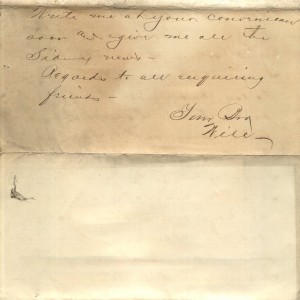 Write me at your convenience
soon and give me all the
Sidney news -
Regards to all enquiring
friends -
Your Bro
Will